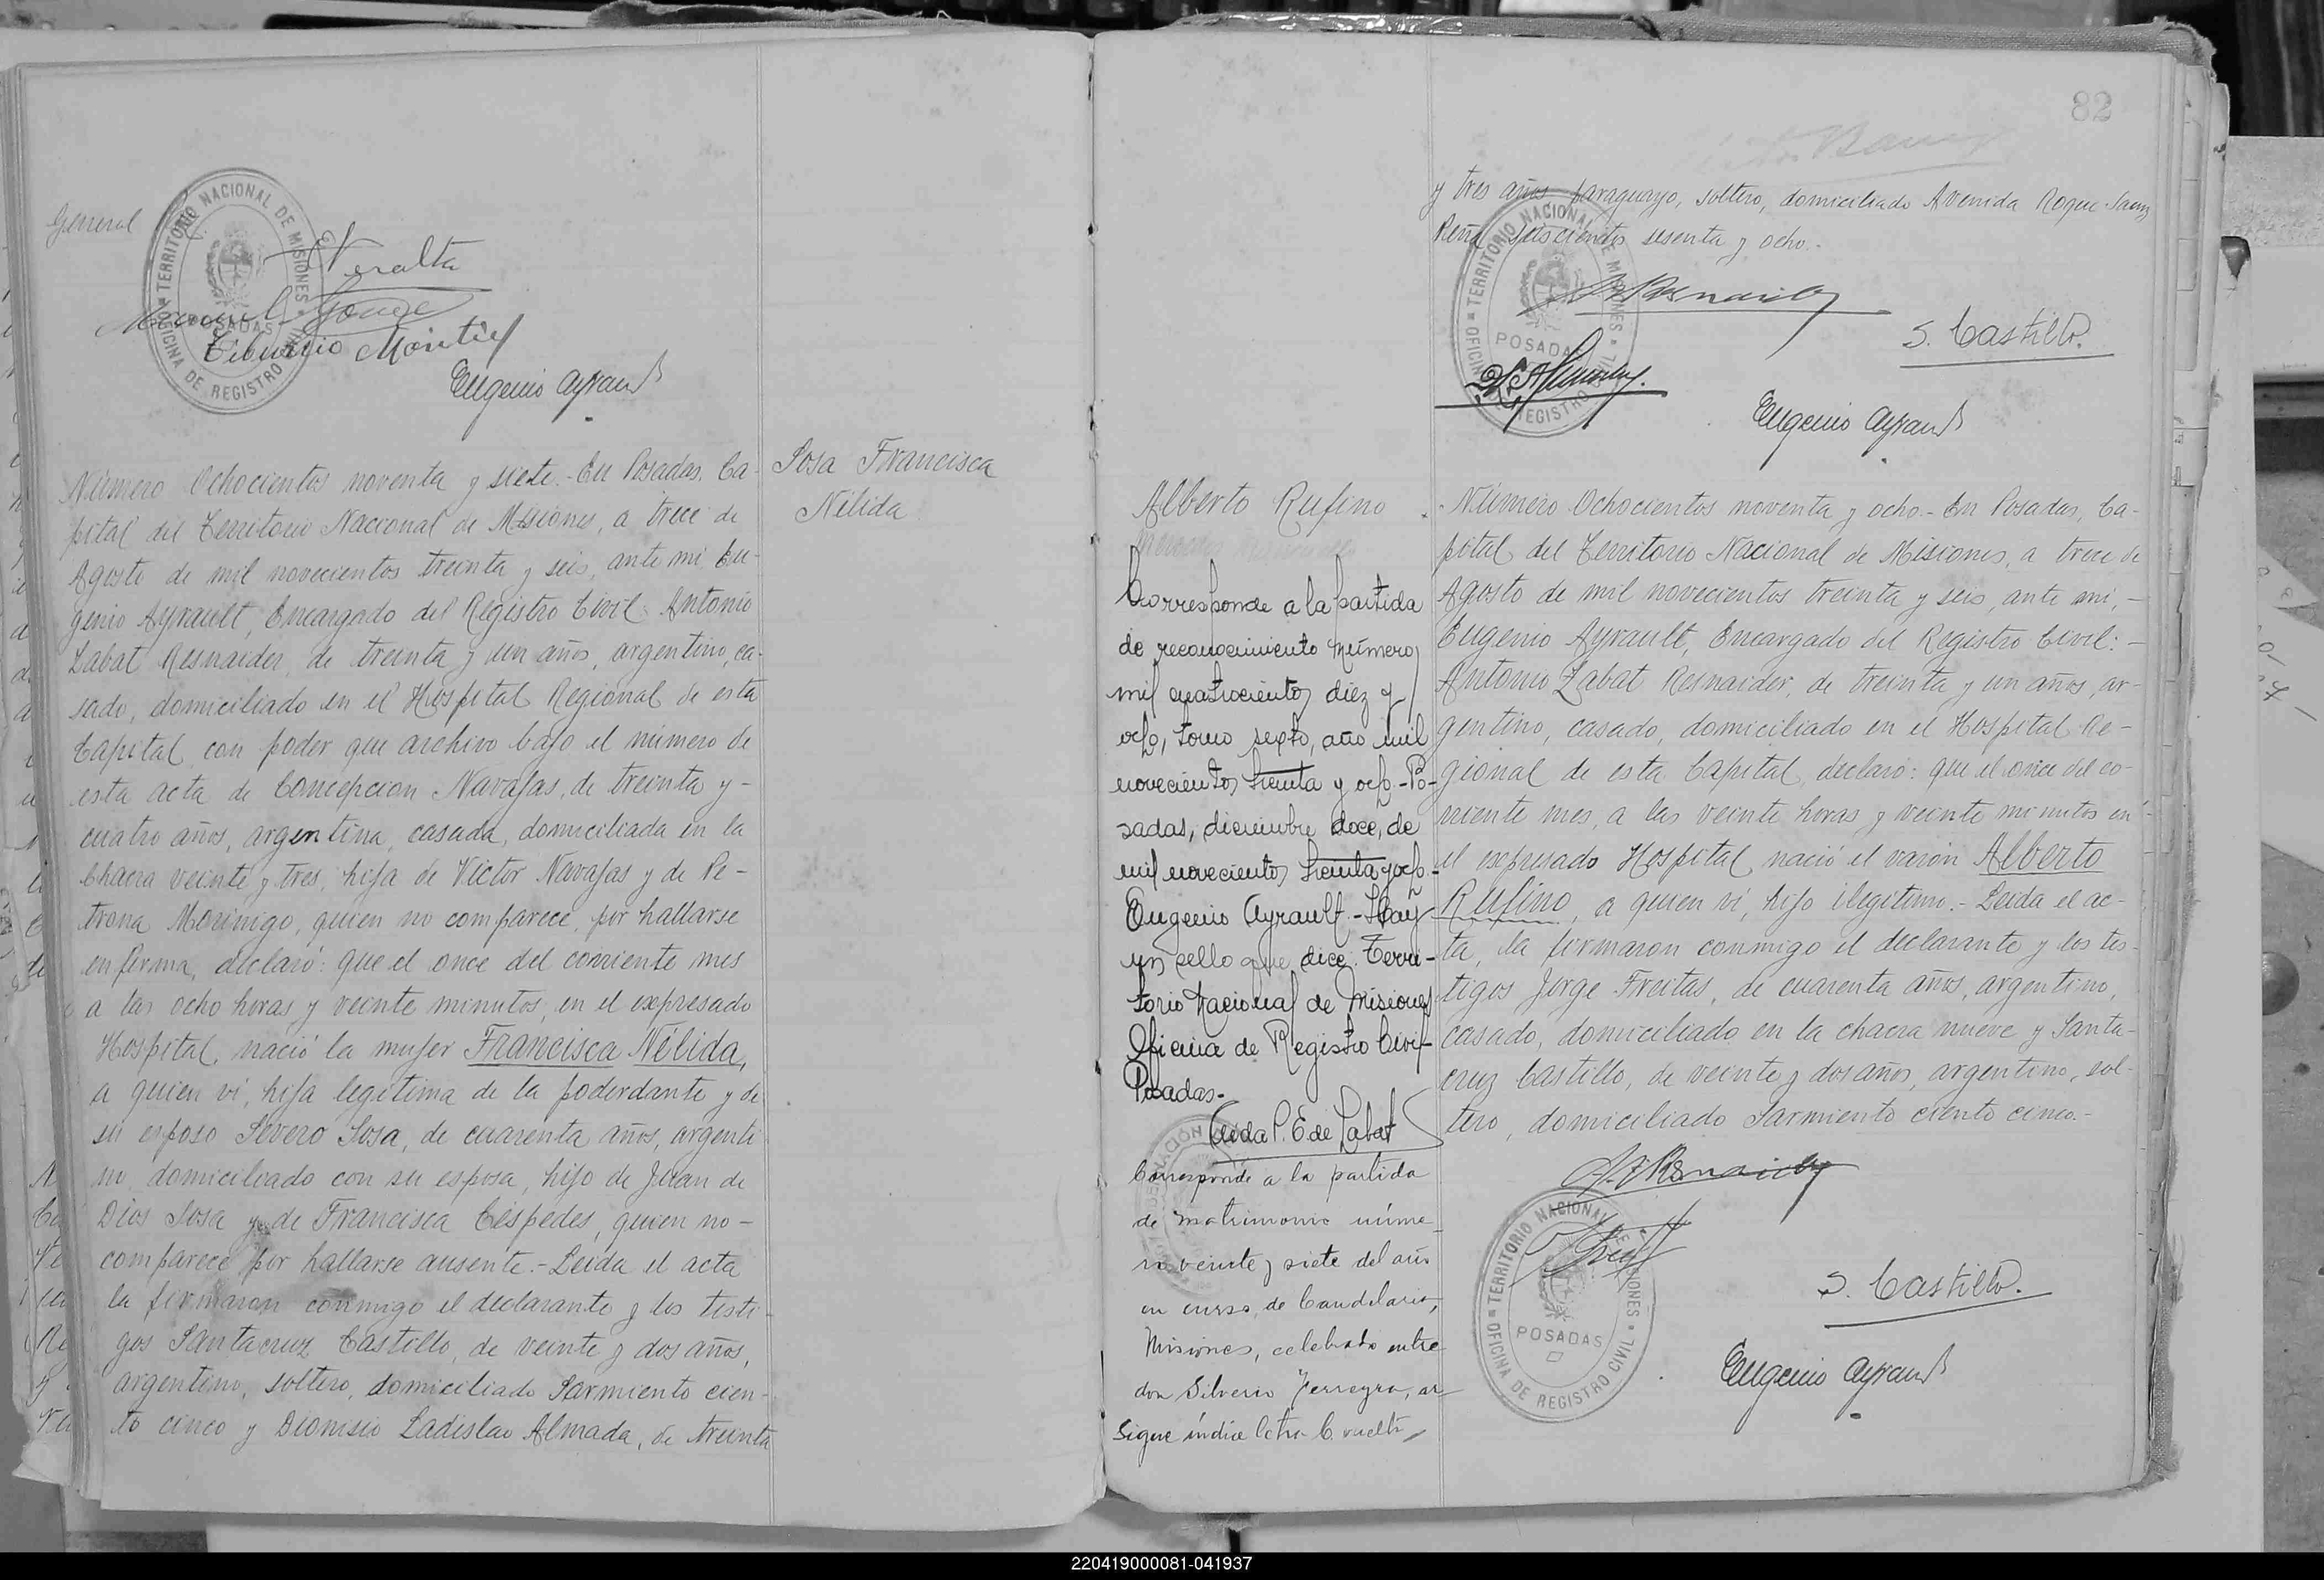 General
TERRITORIO NACIONAL DE MISIONES
POSADAS
OFICINA DE REGISTRO CIVIL
Peralta
Manuel
Tiburcio Montiel
Eugenio Ayrault
Número Ochocientos noventa y siete.- En Posadas, Ca-
pital del Territorio Nacional de Misiones, a trece de
Agosto de mil novecientos treinta y seis, ante mi, Eu-
genio Ayrault, Encargado del Registro Civil: Antonio
Labat Resnaider, de treinta y un años, argentino, ca-
sado, domiciliado en el Hospital Regional de esta
Capital, con poder que archivo bajo el número de
esta acta de Concepcion Navajas, de treinta y-
cuatro años, argentina, casada, domiciliada en la
Chacra veinte y tres, hija de Victor Navajas y de Pe-
trona Morinigo, quien no comparece por hallarse
enferma, declaró: que el once del corriente mes
a las ocho horas y veinte minutos, en el expresado
Hospital, nació la mujer Francisca Nélida,
a quien ví, hija legítima de la poderdante y de
su esposo Severo Sosa, de cuarenta años, argenti
no, domiciliado con su esposa, hijo de Juan de
Dios Sosa y de Francisca Céspedes, quien no-
comparece por hallarse ausente.- Leída el acta
la firmaron conmigo el declarante y los testi-
gos Santacruz Castillo, de veinte y dos años,
argentino, soltero, domiciliado Sarmiento cien-
to cinco y Dionisio Ladislao Almada, de treinta
Sosa Francisca
Nélida
82
y tres años, paraguayo, soltero, domiciliado Avenida Roque Saenz
Peña seiscientos sesenta y ocho.-
TERRITORIO NACIONAL DE MISIONES
POSADAS
OFICINA DE REGISTRO CIVIL
S. Castillo.
Eugenio Ayrault
Alberto Rufino
Corresponde a la partida
de reconocimiento número
mil cuatrocientos diez y
ocho, tomo sexto, año mil
novecientos treinta y ocho.-Po-
sadas, diciembre doce, de
mil novecientos treinta y ocho.-
Eugenio Ayrault.-Hay
un sello que dice: Terri-
torio Nacional de Misiones
Oficina de Registro Civil-
Posadas.-
P. E de Labat
Corresponde a la partida
de matrimonio núme-
ro veinte y siete del año
en curso, de Candelaria,
Misiones, celebrado entre
don Silverio Ferreyra, ar-
Sigue índice letra C. vuelta
Número Ochocientos noventa y ocho.- En Posadas, Ca-
pital del Territorio Nacional de Misiones, a trece de
Agosto de mil novecientos treinta y seis, ante mi,-
Eugenio Ayrault, Encargado del Registro Civil:-
Antonio Labat Resnaider, de treinta y un años, ar-
gentino, casado, domiciliado en el Hospital Re-
gional de esta Capital, declaró: que el once del co-
rriente mes, a las veinte horas y veinte minutos en
el expresado Hospital, nació el varón Alberto
Rufino, a quien ví, hijo ilegítimo.- Leída el ac-
ta, la firmaron conmigo el declarante y los tes-
tigos Jorge Freitas, de cuarenta años, argentino,
casado, domiciliado en la chacra nueve y Santa-
cruz Castillo, de veinte y dos años, argentino, sol-
tero, domiciliado Sarmiento ciento cinco.-
TERRITORIO NACIONAL DE MISIONES
POSADAS
OFICINA DE REGISTRO CIVIL
S. Castillo.
Eugenio Ayrault
220419000081-041937